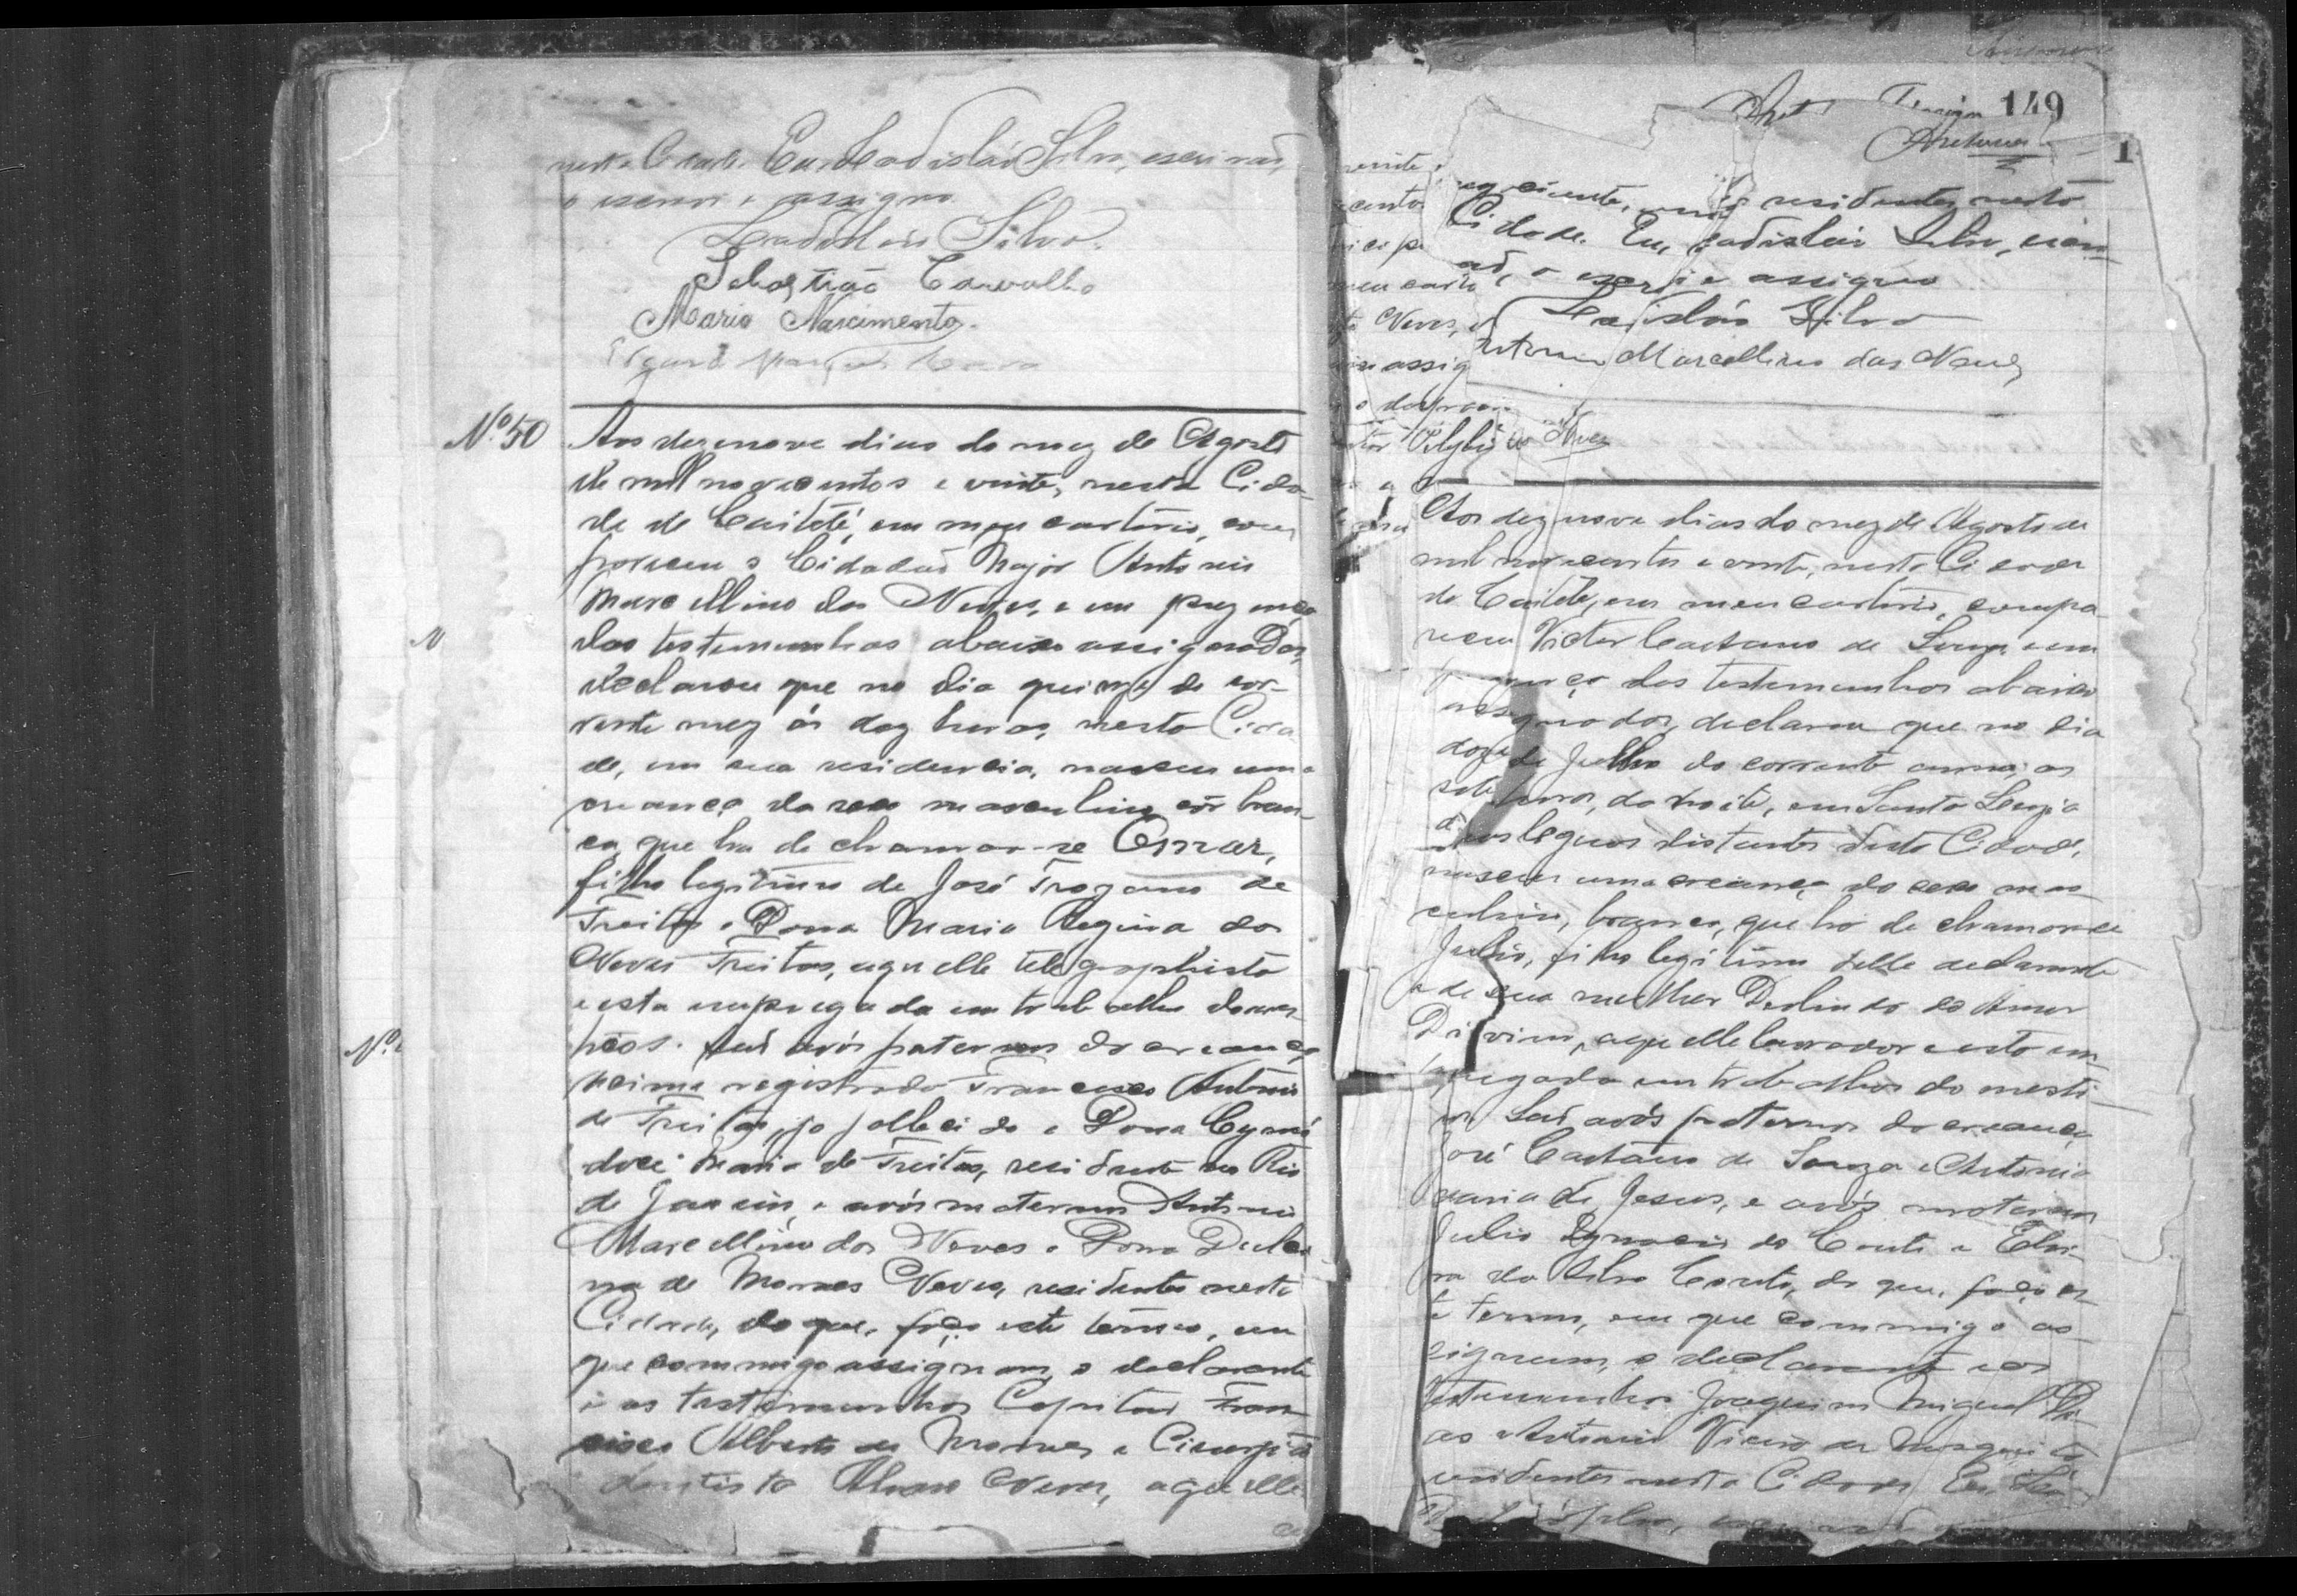 nesta Cidade. Eu, Ladisláo Silva, escrivaõ,
o escrevi e assigno.
Ladisláo Silva.
Sebastião Carvalho
Mario Nascimento.
Nº 50
Aos dezenove dias do mez de Agosto
de mil novecentos e vinte, nesta Cida-
de de Caiteté, em meu cartorio, com
pareceu o Cidadaõ Major Antonio
Marcellino das Neves, e em prezença
das testemunhas abaixo assignadas,
declarou que no dia quinze do cor-
rente mez ás dez horas, nesta Cida
de, em sua residencia, nasceu uma
creança do sexo masculino côr bran-
ca, que ha de chamar-se Osmar,
filho legitimo de José Trajano de
Freitas e Dona Maria Regina das
Neves Freitas, aquelle telegraphista
e esta empregada em trabalhos domes-
ticos. Saõ avós paternos da creança
acima registrada Francisco Antonio
de Freitas, ja fallecido e Dona Cymo
docé Maria de Freitas, residente no Rio
de Janeiro, e avós maternos Antonio
Marcellino das Neves e Dona Dulce
na de Moraes Neves, residentes nesta
Cidade, do que, faço este termo, em
que commigo assignam, o declarante
e as testemunhas Capitaõ Fran
cisco Alberto de Moraes e Cirurgiaõ
dentista Alvaro Neves, aquelle
Nº
149
1
negociante, residentes nesta
Cidade. Eu, Ladisláo Silva, escri-
vaõ, o escrevi e assigno
Ladisláo Silva
Antonio Marcellino das Neves
Neves
Aos dezenove dias do mez de Agosto de
mil novecentos e vinte, nesta Cidade
de Caiteté, em meu cartorio, compa-
receu Victor Caetano de Souza e em
prezença das testemunhas abaixo
assignadas, declarou que no dia
doze de Julho do corrente anno, as
sete horas, da noite, em Santa Luzia
duas leguas distante desta Cidade,
nasceu uma creança do sexo mas-
culino, branca, que ha de chamar-se
Julio, filho legitimo delle declarante
e de sua mulher Deolinda do Amor
Divino, aquelle lavrador e esta em-
pregada em trabalhos do mesti-
cos. Saõ avós paternos da creança
José Caetano de Souza e Antonia
Maria de Jesus, e avós maternos
Julio Ignacio do Couto e Elvi-
ra da Silva Couto, do que, faço es-
te termo, em que commigo as-
signam, o declarante e as
testemunhas Joaquim Miguel
e Antonio Vieira de
residentes nesta Cidade. Eu, La-